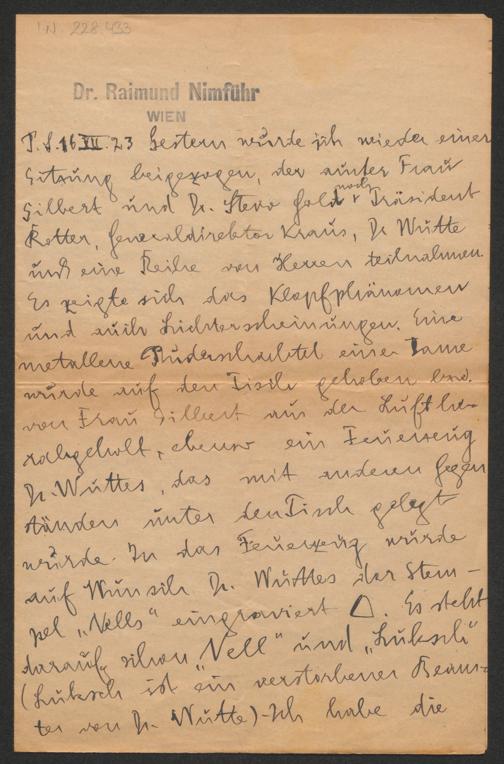 I.N. 228.433
Dr. Raimund Nimführ
WIEN
P.S. 16 VII. 23 Gestern wurde ich wieder einer
Sitzung beigezogen, der außer Frau
Silbert und Dr. Stevo Gold noch Präsident
Retter, Generaldirektor Kraus, Dr Wutte
und eine Reihe von Herren teilnahmen.
Es zeigte sich das Klopfphänomen
und auch Lichterscheinungen. Eine
metallene Puderschachtel einer Dame
wurde auf den Tisch gehoben bzw.
von Frau Silbert aus der Luft he-
rabgeholt, ebenso ein Feuerzeug
Dr. Wuttes, das mit anderen Gegen
ständen unter den Tisch gelegt
wurde. In das Feuerzeug wurde
auf Wunsch Dr. Wuttes der Stem-
pel „Nells" eingraviert △. Es steht
darauf schon „Nell" und „Luksch"
(Luksch ist ein verstorbener Beam-
ter von Dr. Wutte) - Ich habe die